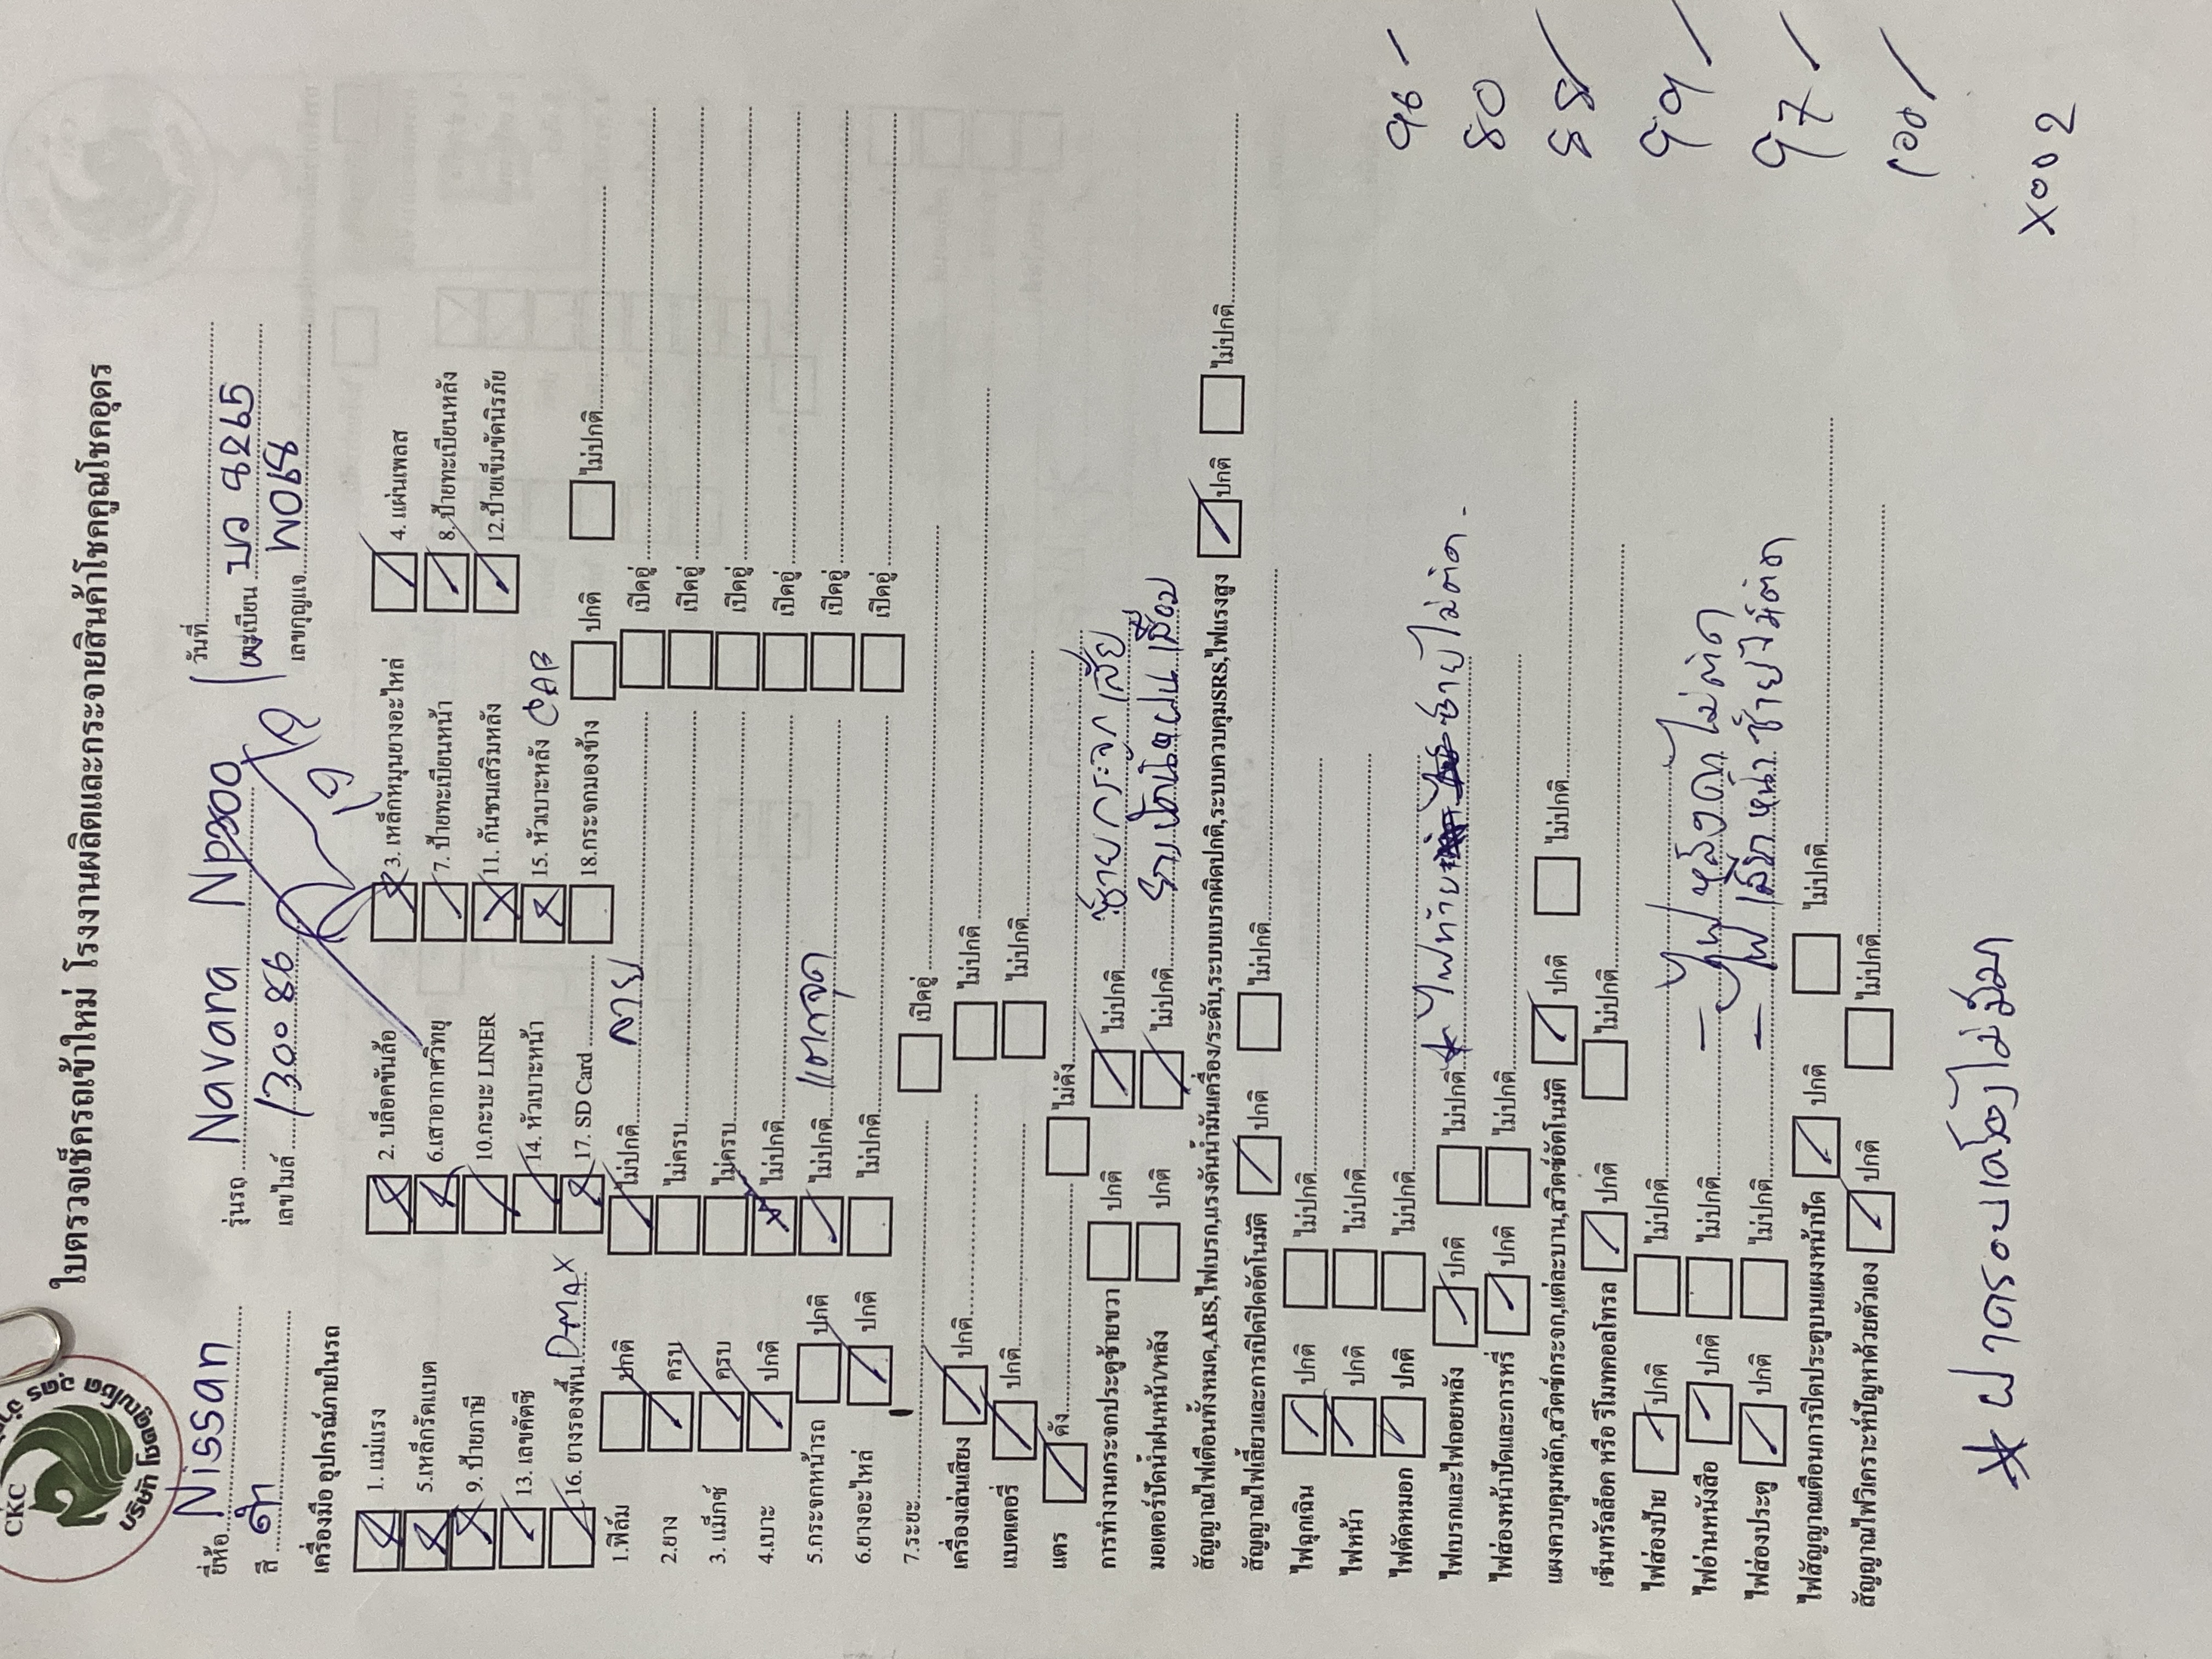 CKC
บริษัท โชคคูณโชค อุดร
ใบตรวจเช็ครถเข้าใหม่ โรงงานผลิตและกระจายสินค้าโชคคูณโชคอุดร
ยี่ห้อ Nissan รุ่นรถ Navara Np300 วันที่
สี ดำ เลขไมล์ 130086 ทะเบียน บว 9265
เลขกุญแจ
เครื่องมือ อุปกรณ์ภายในรถ
1. แม่แรง 2. บล็อคขันล้อ 3. เหล็กหมุนยางอะไหล่ 4. แผ่นเพลส
5.เหล็กรัดเบต 6.เสาอากาศวิทยุ 7. ป้ายทะเบียนหน้า 8. ป้ายทะเบียนหลัง
9. ป้ายภาษี 10.กะบะ LINER 11. กันชนเสริมหลัง 12.ป้ายเข็มขัดนิรภัย
13. เลขคัตซี 14. หัวเบาะหน้า 15. หัวเบาะหลัง CAB
16. ยางรองพื้น DMAX 17. SD Card 18.กระจกมองข้าง ปกติ ไม่ปกติ
1.ฟิล์ม ปกติ ไม่ปกติ ลาย เปิดอู่
2.ยาง ครบ ไม่ครบ เปิดอู่
3. แม็กซ์ ครบ ไม่ครบ เปิดอู่
4.เบาะ ปกติ ไม่ปกติ เปิดอู่
5.กระจกหน้ารถ ปกติ ไม่ปกติ แตกจุด เปิดอู่
6.ยางอะไหล่ ปกติ ไม่ปกติ เปิดอู่
7.ระยะ เปิดอู่
เครื่องเล่นเสียง ปกติ ไม่ปกติ
แบตเตอรี่ ปกติ ไม่ปกติ
แตร ดัง ไม่ดัง
การทำงานกระจกประตูซ้ายขวา ปกติ ไม่ปกติ ซ้ายกระจกเสีย
มอเตอร์ปัดน้ำฝนหน้า/หลัง ปกติ ไม่ปกติ
สัญญาณไฟเตือนทั้งหมด,ABS,ไฟเบรก,แรงดันน้ำมันเครื่อง/ระดับ,ระบบเบรกผิดปกติ,ระบบควบคุมSRS,ไฟแรงสูง ปกติ ไม่ปกติ
สัญญาณไฟเลี้ยวและการเปิดปิดอัตโนมัติ ปกติ ไม่ปกติ
ไฟฉุกเฉิน ปกติ ไม่ปกติ
ไฟหน้า ปกติ ไม่ปกติ
ไฟตัดหมอก ปกติ ไม่ปกติ
ไฟเบรกและไฟถอยหลัง ปกติ ไม่ปกติ ไฟท้าย ซ้ายไม่ติด
ไฟส่องหน้าปัดและการหรี่ ปกติ ไม่ปกติ
แผงควบคุมหลัก,สวิตช์กระจก,แต่ละบาน,สวิตช์อัตโนมัติ ปกติ ไม่ปกติ
เซ็นทรัลล็อค หรือ รีโมทคอลโทรล ปกติ ไม่ปกติ
ไฟส่องป้าย ปกติ ไม่ปกติ
ไฟอ่านหนังสือ ปกติ ไม่ปกติ - ไฟหลังคาไม่ติด
ไฟส่องประตู ปกติ ไม่ปกติ - ไฟหน้าซ้ายไม่ติด
ไฟสัญญาณเตือนการปิดประตูบนแผงหน้าปัด ปกติ ไม่ปกติ
สัญญาณไฟวิเคราะห์ปัญหาด้วยตัวเอง ปกติ ไม่ปกติ
96
80
88
99
97
100
X002